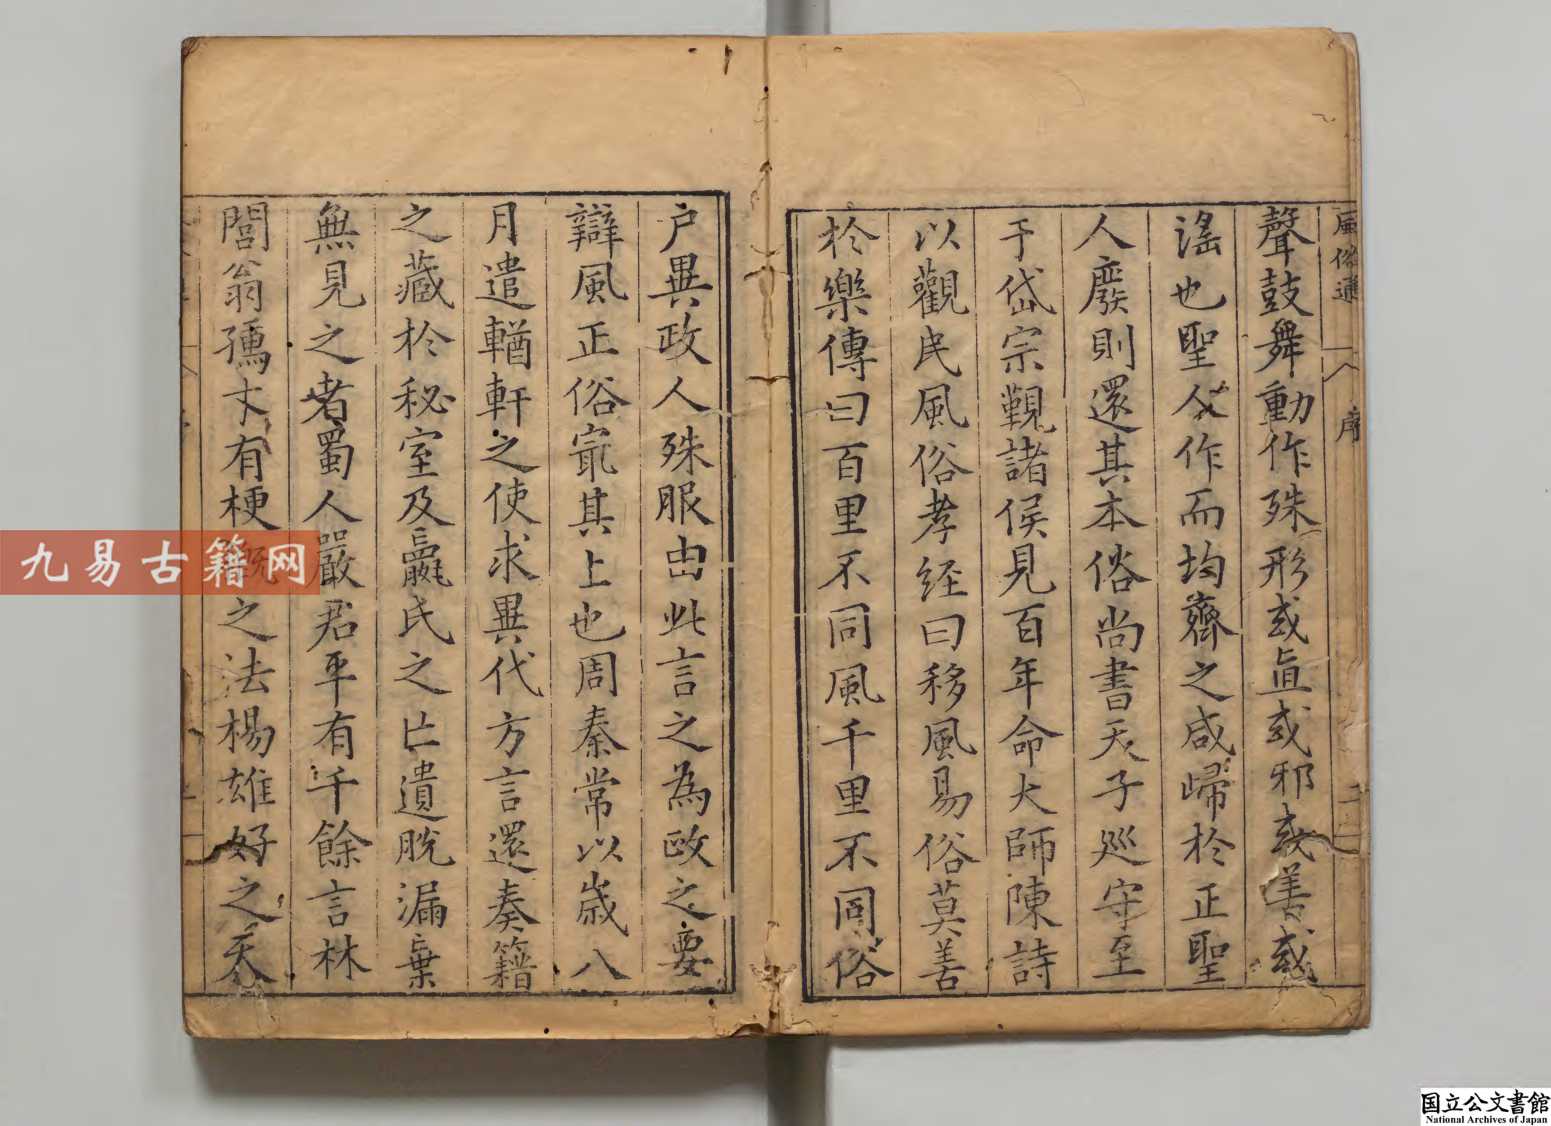 風俗通 序
聲鼓舞動作殊形或直或邪或善或
滛也聖人作而均齊之咸歸於正聖
人廢則還其本俗尚書天子巡守至
于岱宗覲諸侯見百年命大師陳詩
以觀民風俗孝經曰移風易俗莫善
於樂傳曰百里不同風千里不同俗
户異政人殊服由此言之為政之要
辯風正俗㝡其上也周秦常以歲八
月遣輶軒之使求異代方言還奏籍
之藏於秘室及嬴氏之亡遺脫漏棄
無見之者蜀人嚴君平有千餘言林
閭翁孺才有梗概之法楊雄好之天
九易古籍网
国立公文書館
National Archives of Japan